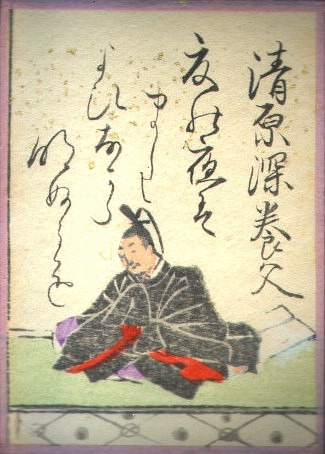 清原深養父
夏の夜は
まだ
よひながら
明ぬるを